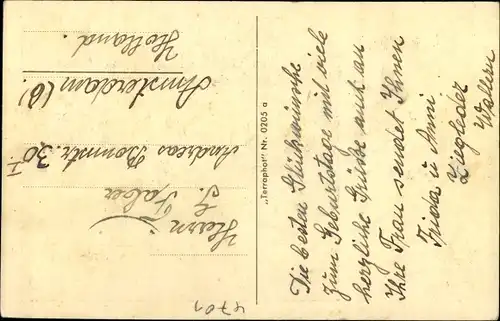 Die besten Glückwünsche
zum Geburtstage mit viele
herzliche Grüße auch an
Ihre Frau sendet Ihnen
Frieda u Anni
Ziegleder
"Terraphot" Nr. 0205 a
Herrn
F. Faber
Andreas Bonnstr. 30 I.
Amsterdam (O)
Holland.
4701